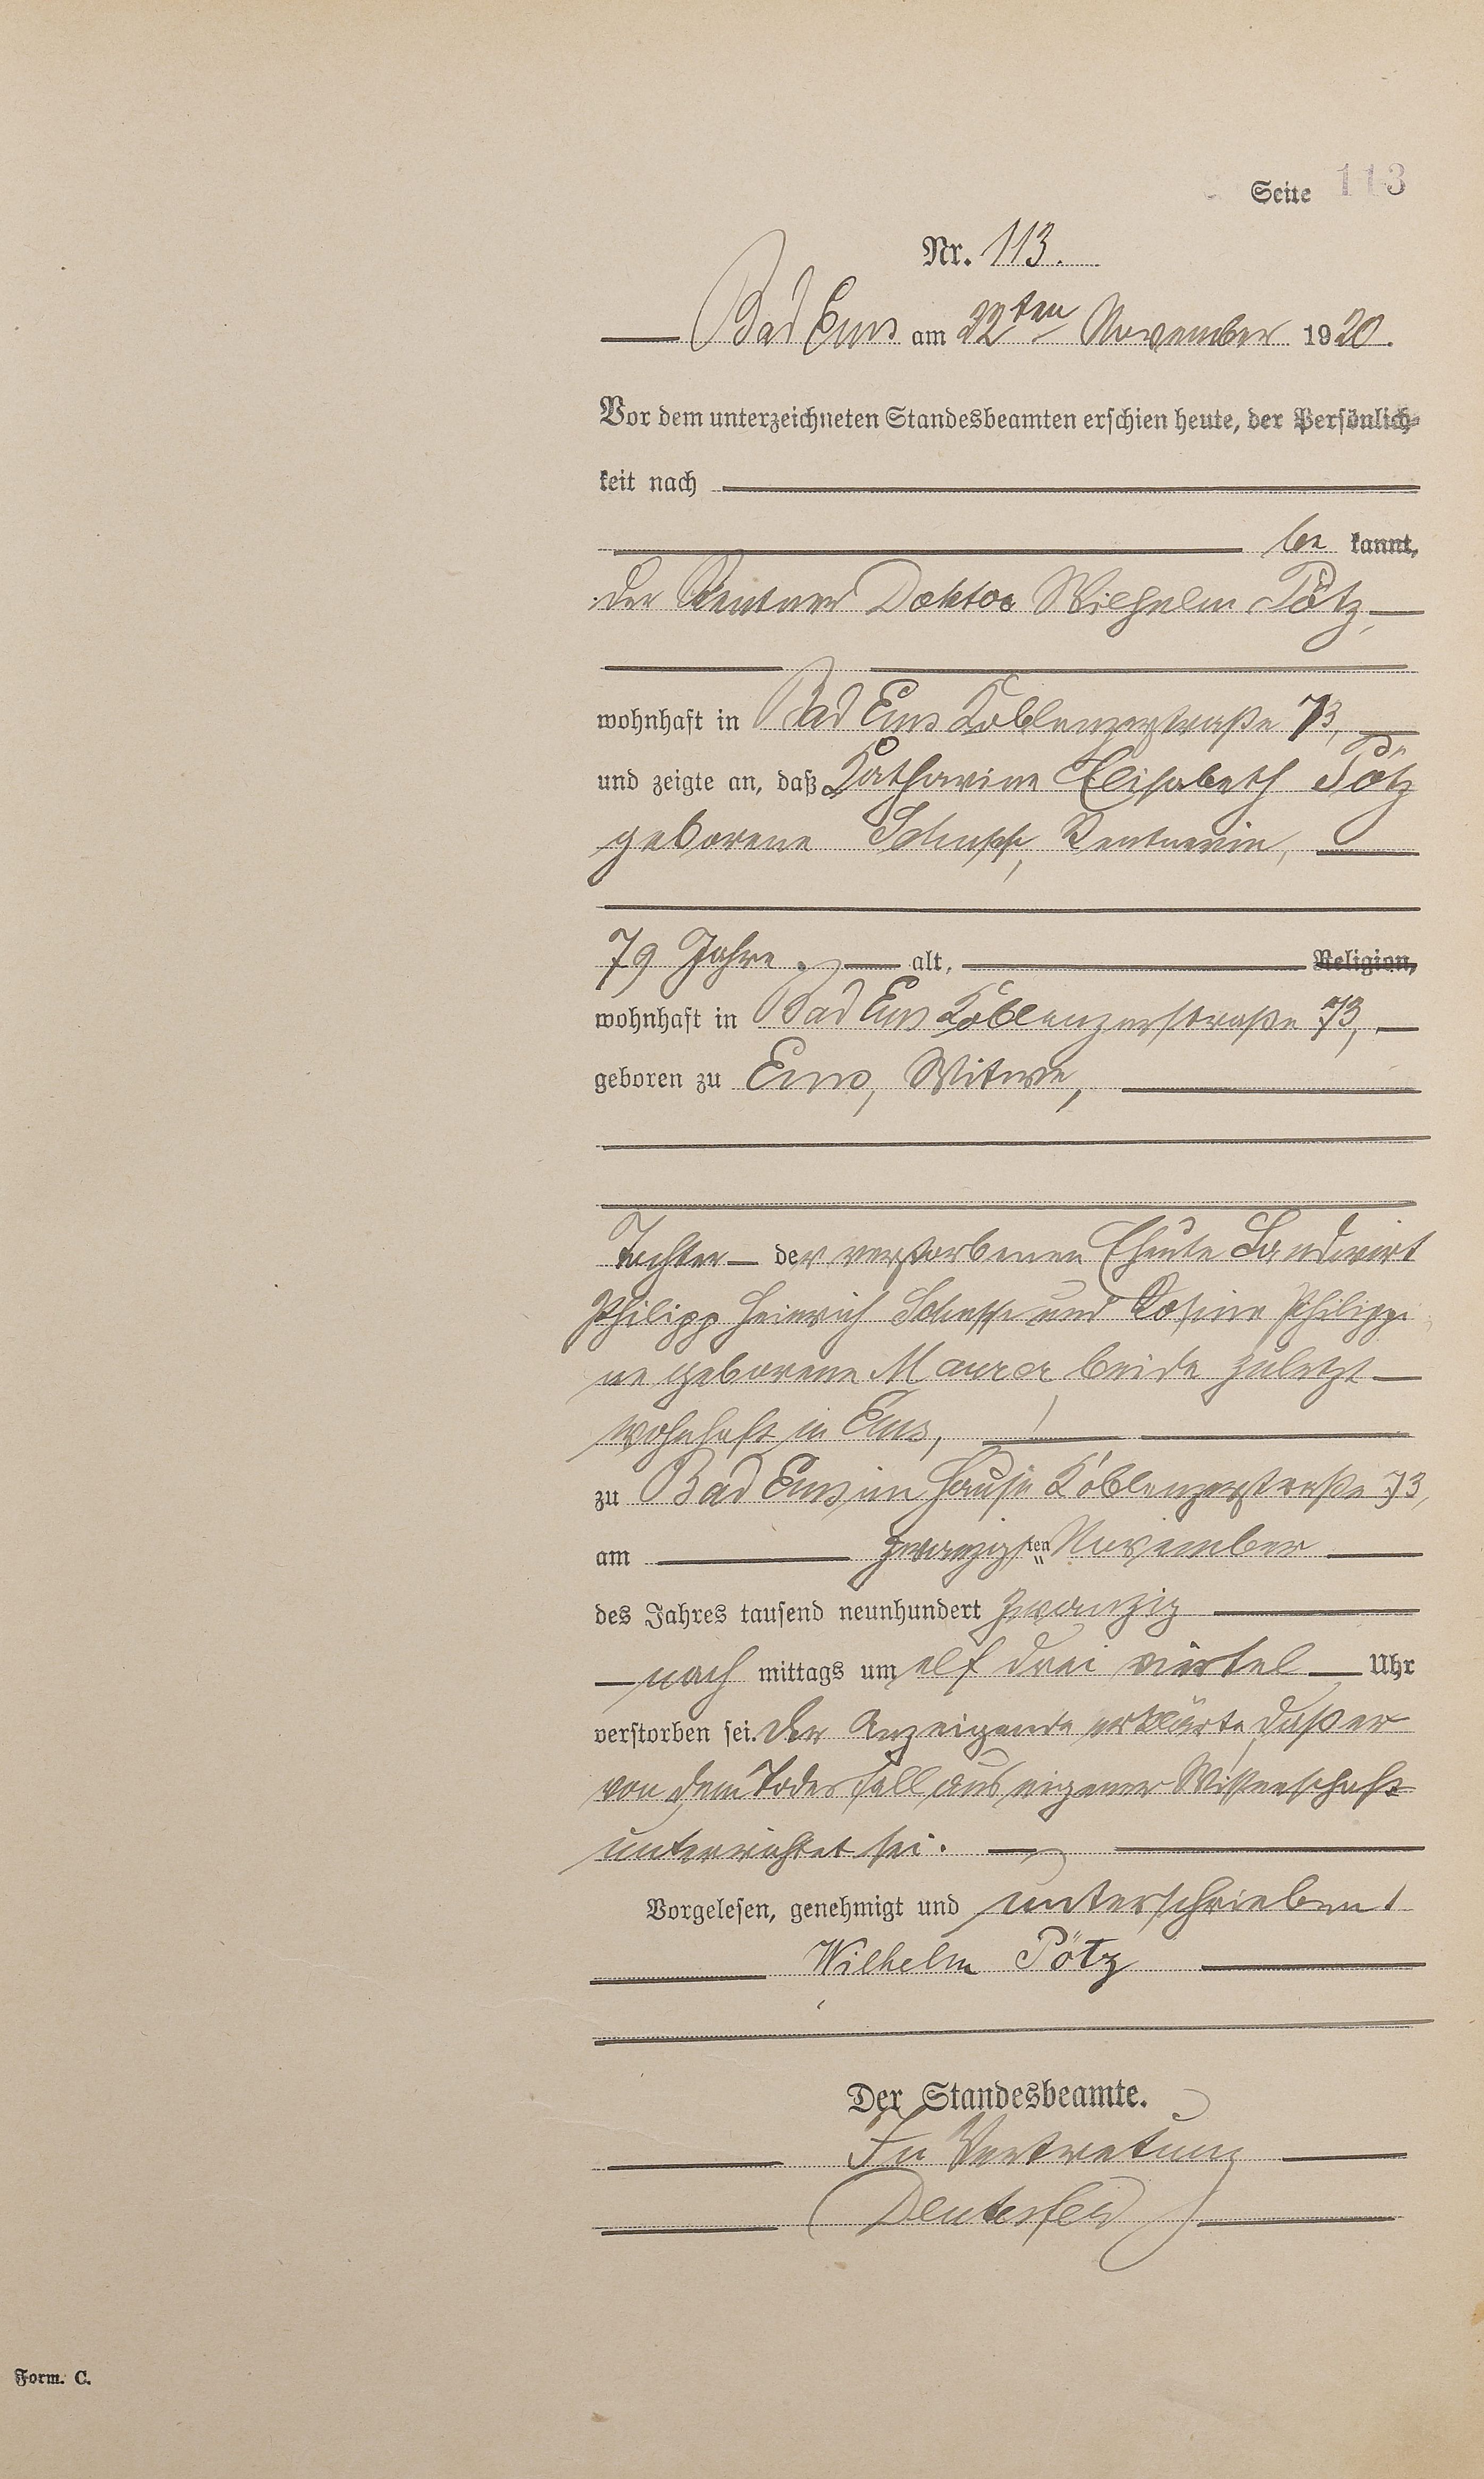 Seite 113
Nr. 113.
Bad Ems am 22ten November 1920.
Vor dem unterzeichneten Standesbeamten erschien heute, der Persönlich-
keit nach
be kannt,
der Rentner Doktor Wilhelm Pötz,
wohnhaft in Bad Ems Koblenzerstraße 73,
und zeigte an, daß Katharine Elisabeth Pötz
geborene Schupp, Rentnerin,
79 Jahre alt, Religion,
wohnhaft in Bad Ems Koblenzerstraße 73,
geboren zu Ems, Witwe,
Tochter der verstorbenen Eheleute Landwirt
Philipp Heinrich Schupp und Rosine Philippi
ne geborene Maurer beide zuletzt
wohnhaft in Ems,
zu Bad Ems im Hause Koblenzerstraße 73,
am zwanzigsten November
des Jahres tausend neunhundert zwanzig
nach mittags um elf drei viertel Uhr
verstorben sei. Der Anzeigende erklärte, daß er
von dem Todesfall aus eigener Wissenschaft
unterrichtet sei.
Vorgelesen, genehmigt und unterschrieben
Wilhelm Pötz
Der Standesbeamte.
In Vertretung
Form. C.